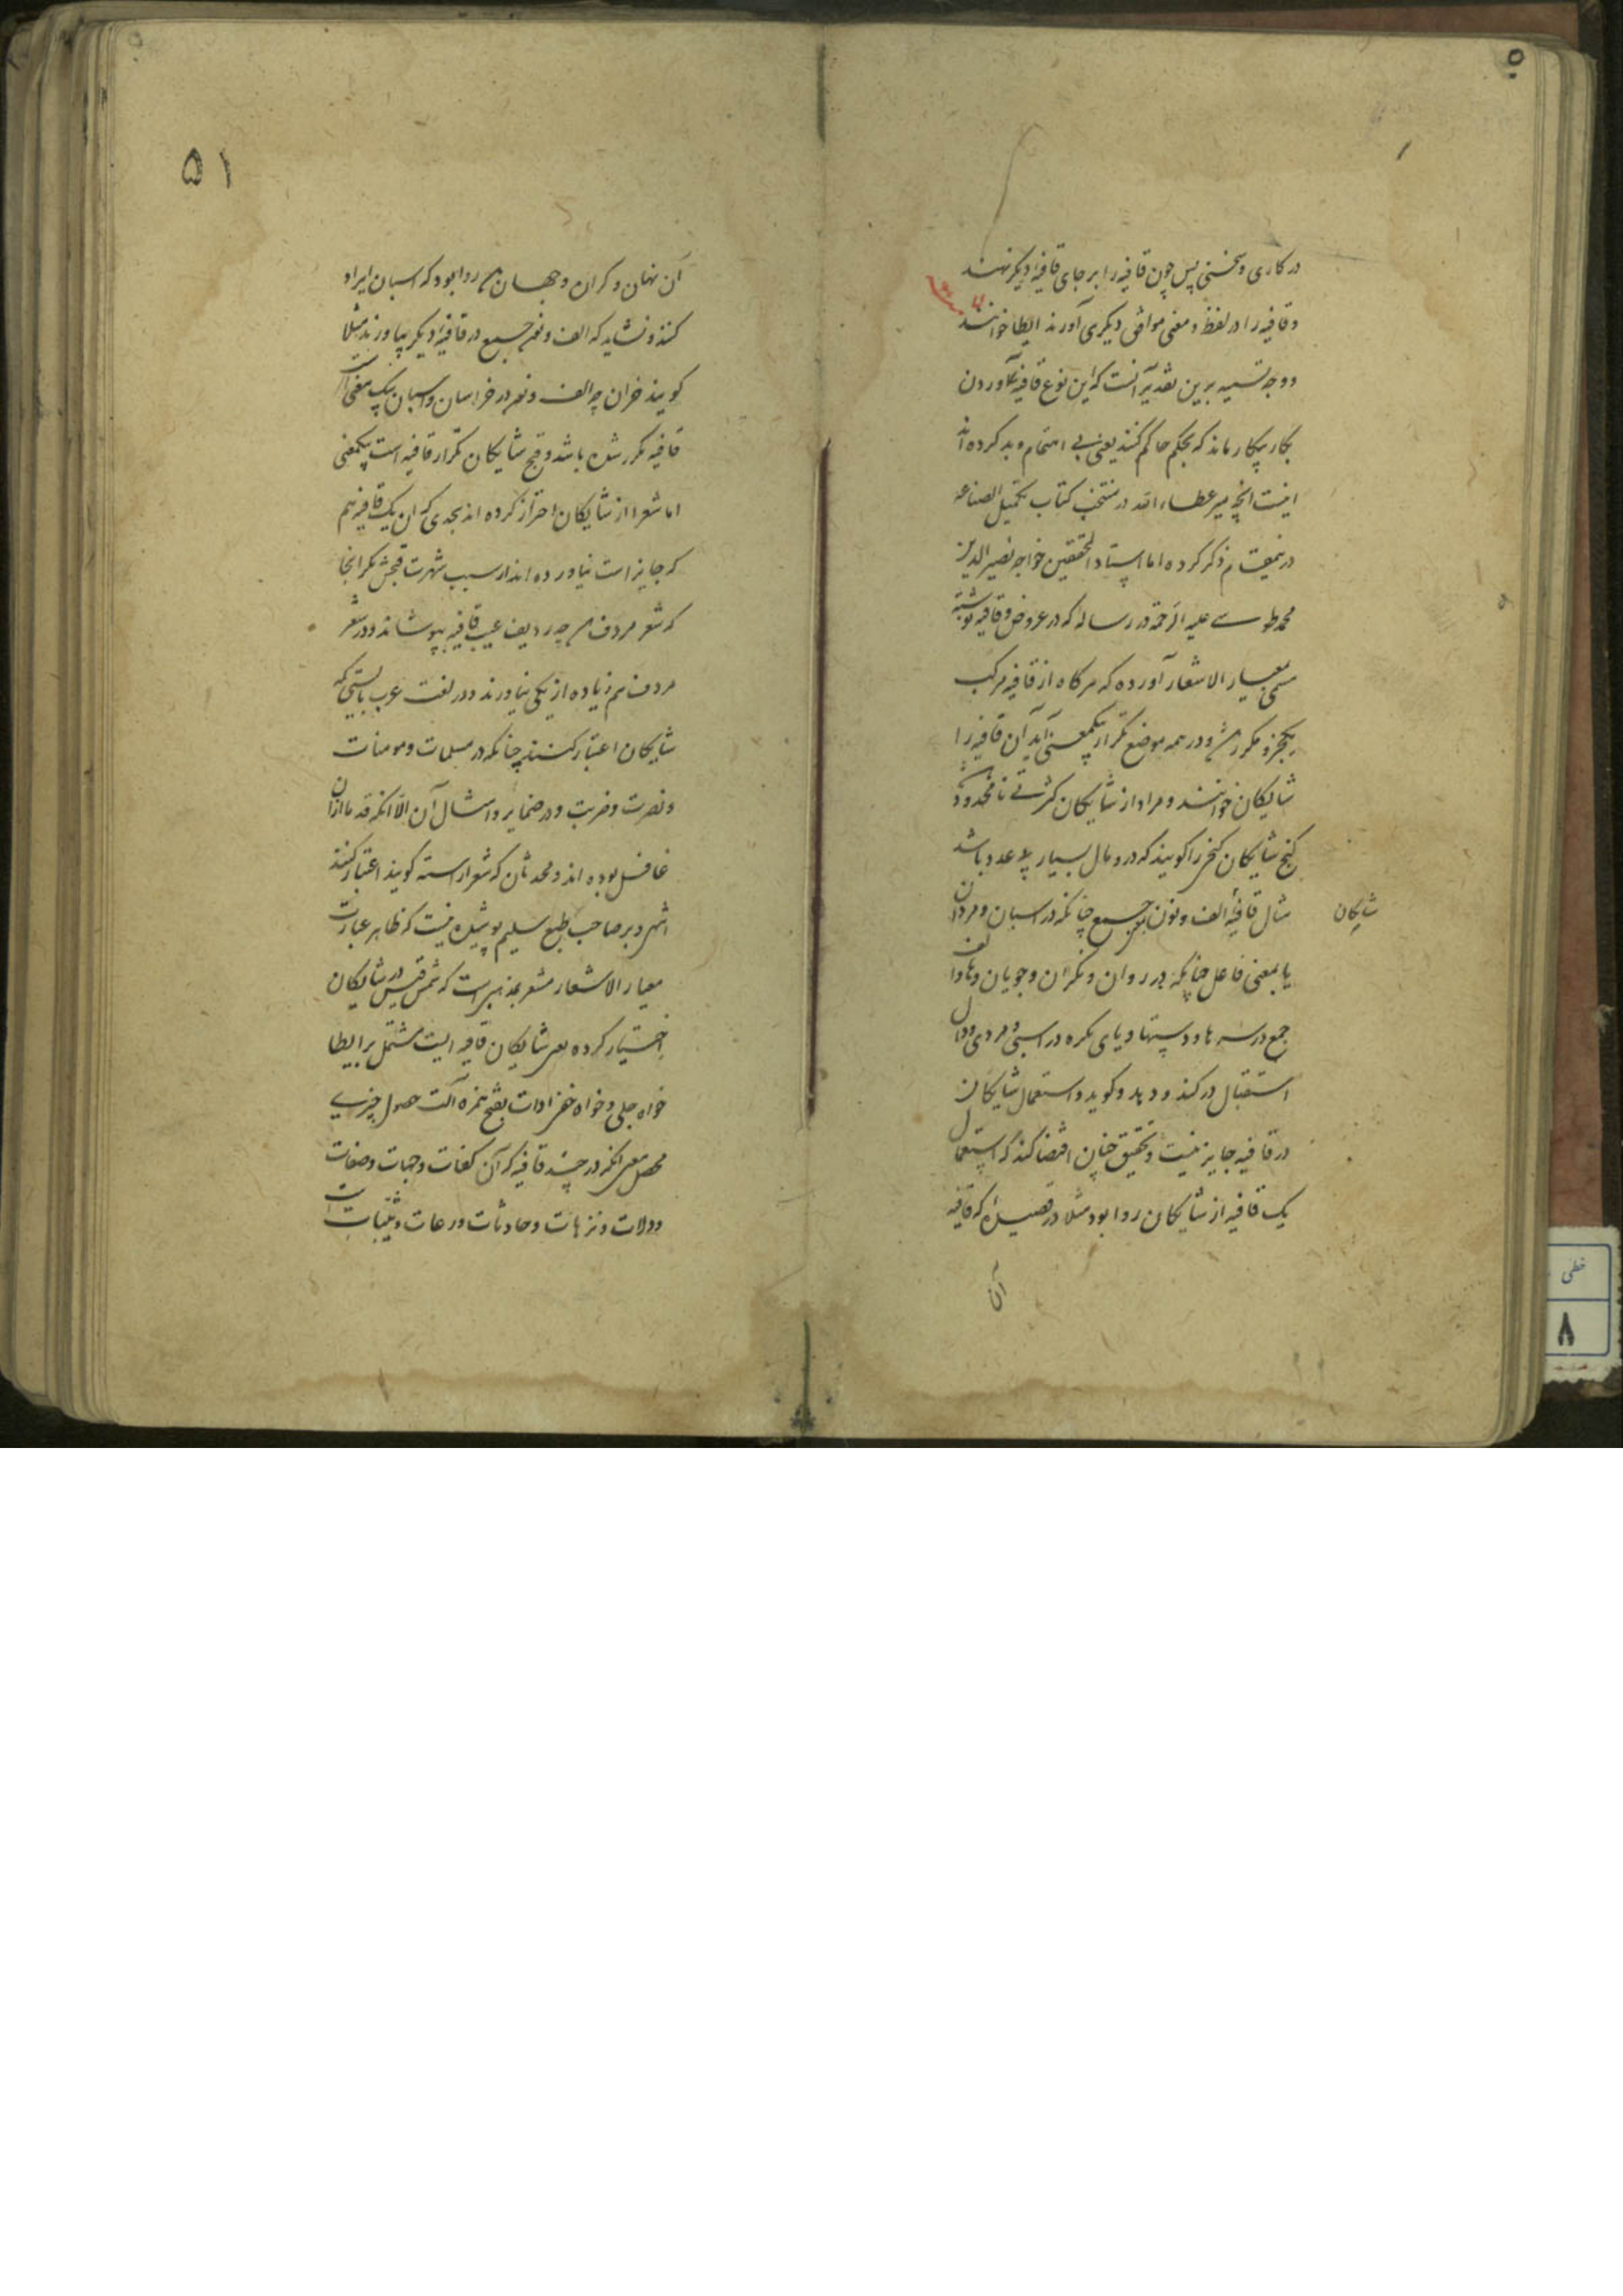 در کاری و سخنی پس چون قافیه را بر جای قافیهٔ دیگر نهند
و قافیه را در لفظ و معنی موافق دیکری آورند ایطا خوانند
و وجه تسمیه برین تقدیر آنست که این نوع قافیه آوردن
بکار پیکار ماند که بحکم حاکم کنند یعنی بی اهتمام و بد کرده اند
اینست انچه میر عطاء الله در منتخب کتاب تکمیل الصناعه
درینمقام ذکر کرده اما استاد المحققین خواجه نصیر الدین
محمد طوسی علیه الرحمة در رساله که در عروض و قافیه نوشته
مسمی بمعیار الاشعار آورده که هرکاه از قافیه مرکب
یکجزو مکرر شود در همه موضع تکرار بیکمعنی آید آن قافیه را
شایکان خوانند و مراد از شایکان کثرتی نامحدود
کنج شایکان کنجی را کویند که درو مال بسیار بلا عدد باشد
مثال قافیهٔ الف و نون جمع چنانکه در اسبان و مردان
شایکان
یا بمعنی فاعل چنانکه در روان و نکران و جویان و ها و الف
جمع در سرها و دستها و یای نکره در اسبی و مردی و دال
استقبال در کند و دهد و کوید و استعمال شایکان
در قافیه جایز نیست و تحقیق چنان اقتضا کند که استعمال
یک قافیه از شایکان روا بود مثلا در قصیدهٔ که قافیه
آن
۵۱
آن نهان و کران و جهان روا بود که اسبان ایراد
کنند و نشاید که الف و نون جمع در قافیهٔ دیکر بیاورند مثلا
کویند خران چه الف و نون در خراسان و اسبان بیک معنی است
قافیه مکرر شده باشد و قبح شایکان تکرار قافیه است بیکمعنی
اما شعرا از شایکان احتراز کرده اند بحدی که آن یک قافیه هم
که جایز است نیاورده اند از سبب شهرت قبحش مکر انجا
که شعر مردف چه ردیف عیب قافیه بپوشاند و در شعر
مردف هم زیاده از یکی نیاورند و در لغت عرب بایستی که
شایکان اعتبار کنند چنانکه در مسلمات و مومنات
و نصرت و ضربت و در ضمایر و امثال آن الا انکه قدما ازان
غافل بوده اند و محدثان که شعر آراسته کویند اعتبار کنند
انتهی و بر صاحب طبع سلیم پوشیده نیست که ظاهر عبارت
معیار الاشعار مشعر بمذهبی است که شمس قیس در شایکان
اختیار کرده یعنی شایکان قافیه ایست مشتمل بر ایطا
خواه جلی و خواه خفی ادات بفتح همزه آلت حصول چیزی
محصل معنی انکه در چند قافیه که آن کفات و جهات و صفات
و ولات و نزهات و حادثات و رعات و